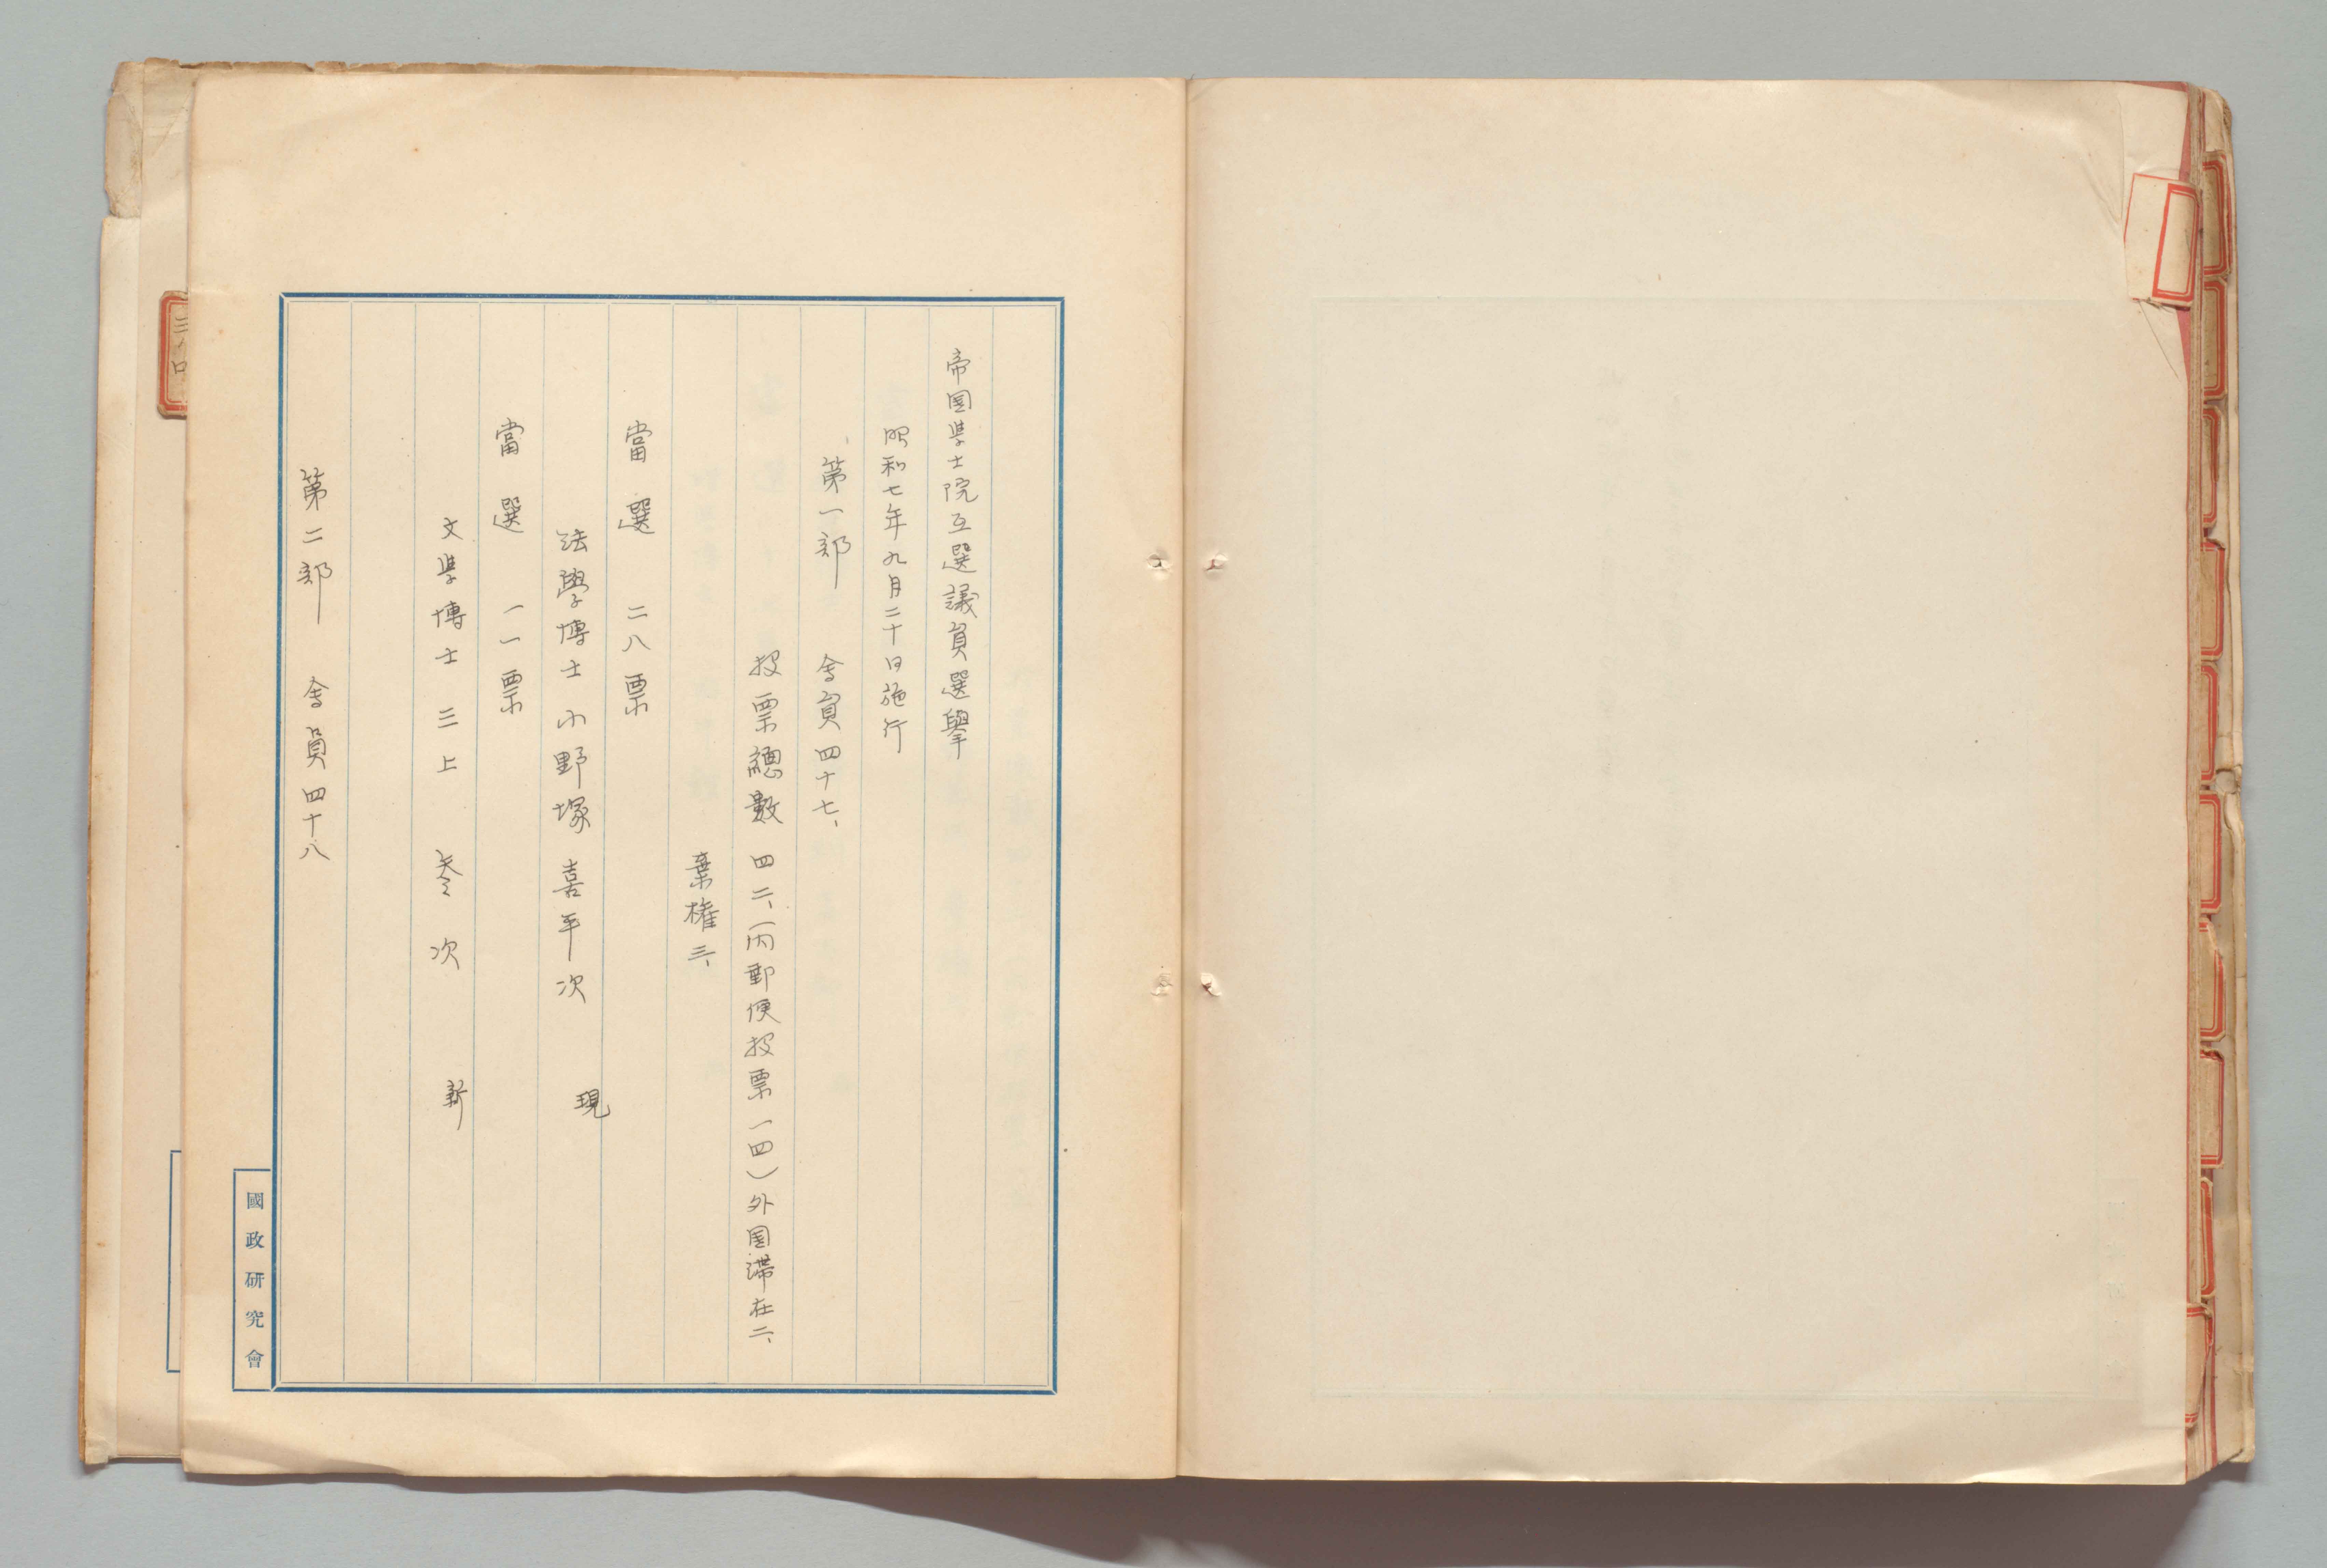 帝国学士院互選議員選擧
昭和七年九月二十日施行
第一部　会員四十七、
投票總數　四二、（内郵便投票一四）外国滞在二、
棄権三、
當選　二八票
法學博士小野塚喜平次　現
當選　一一票
文学博士三上参次　新
第二部　会員四十八
國政研究會